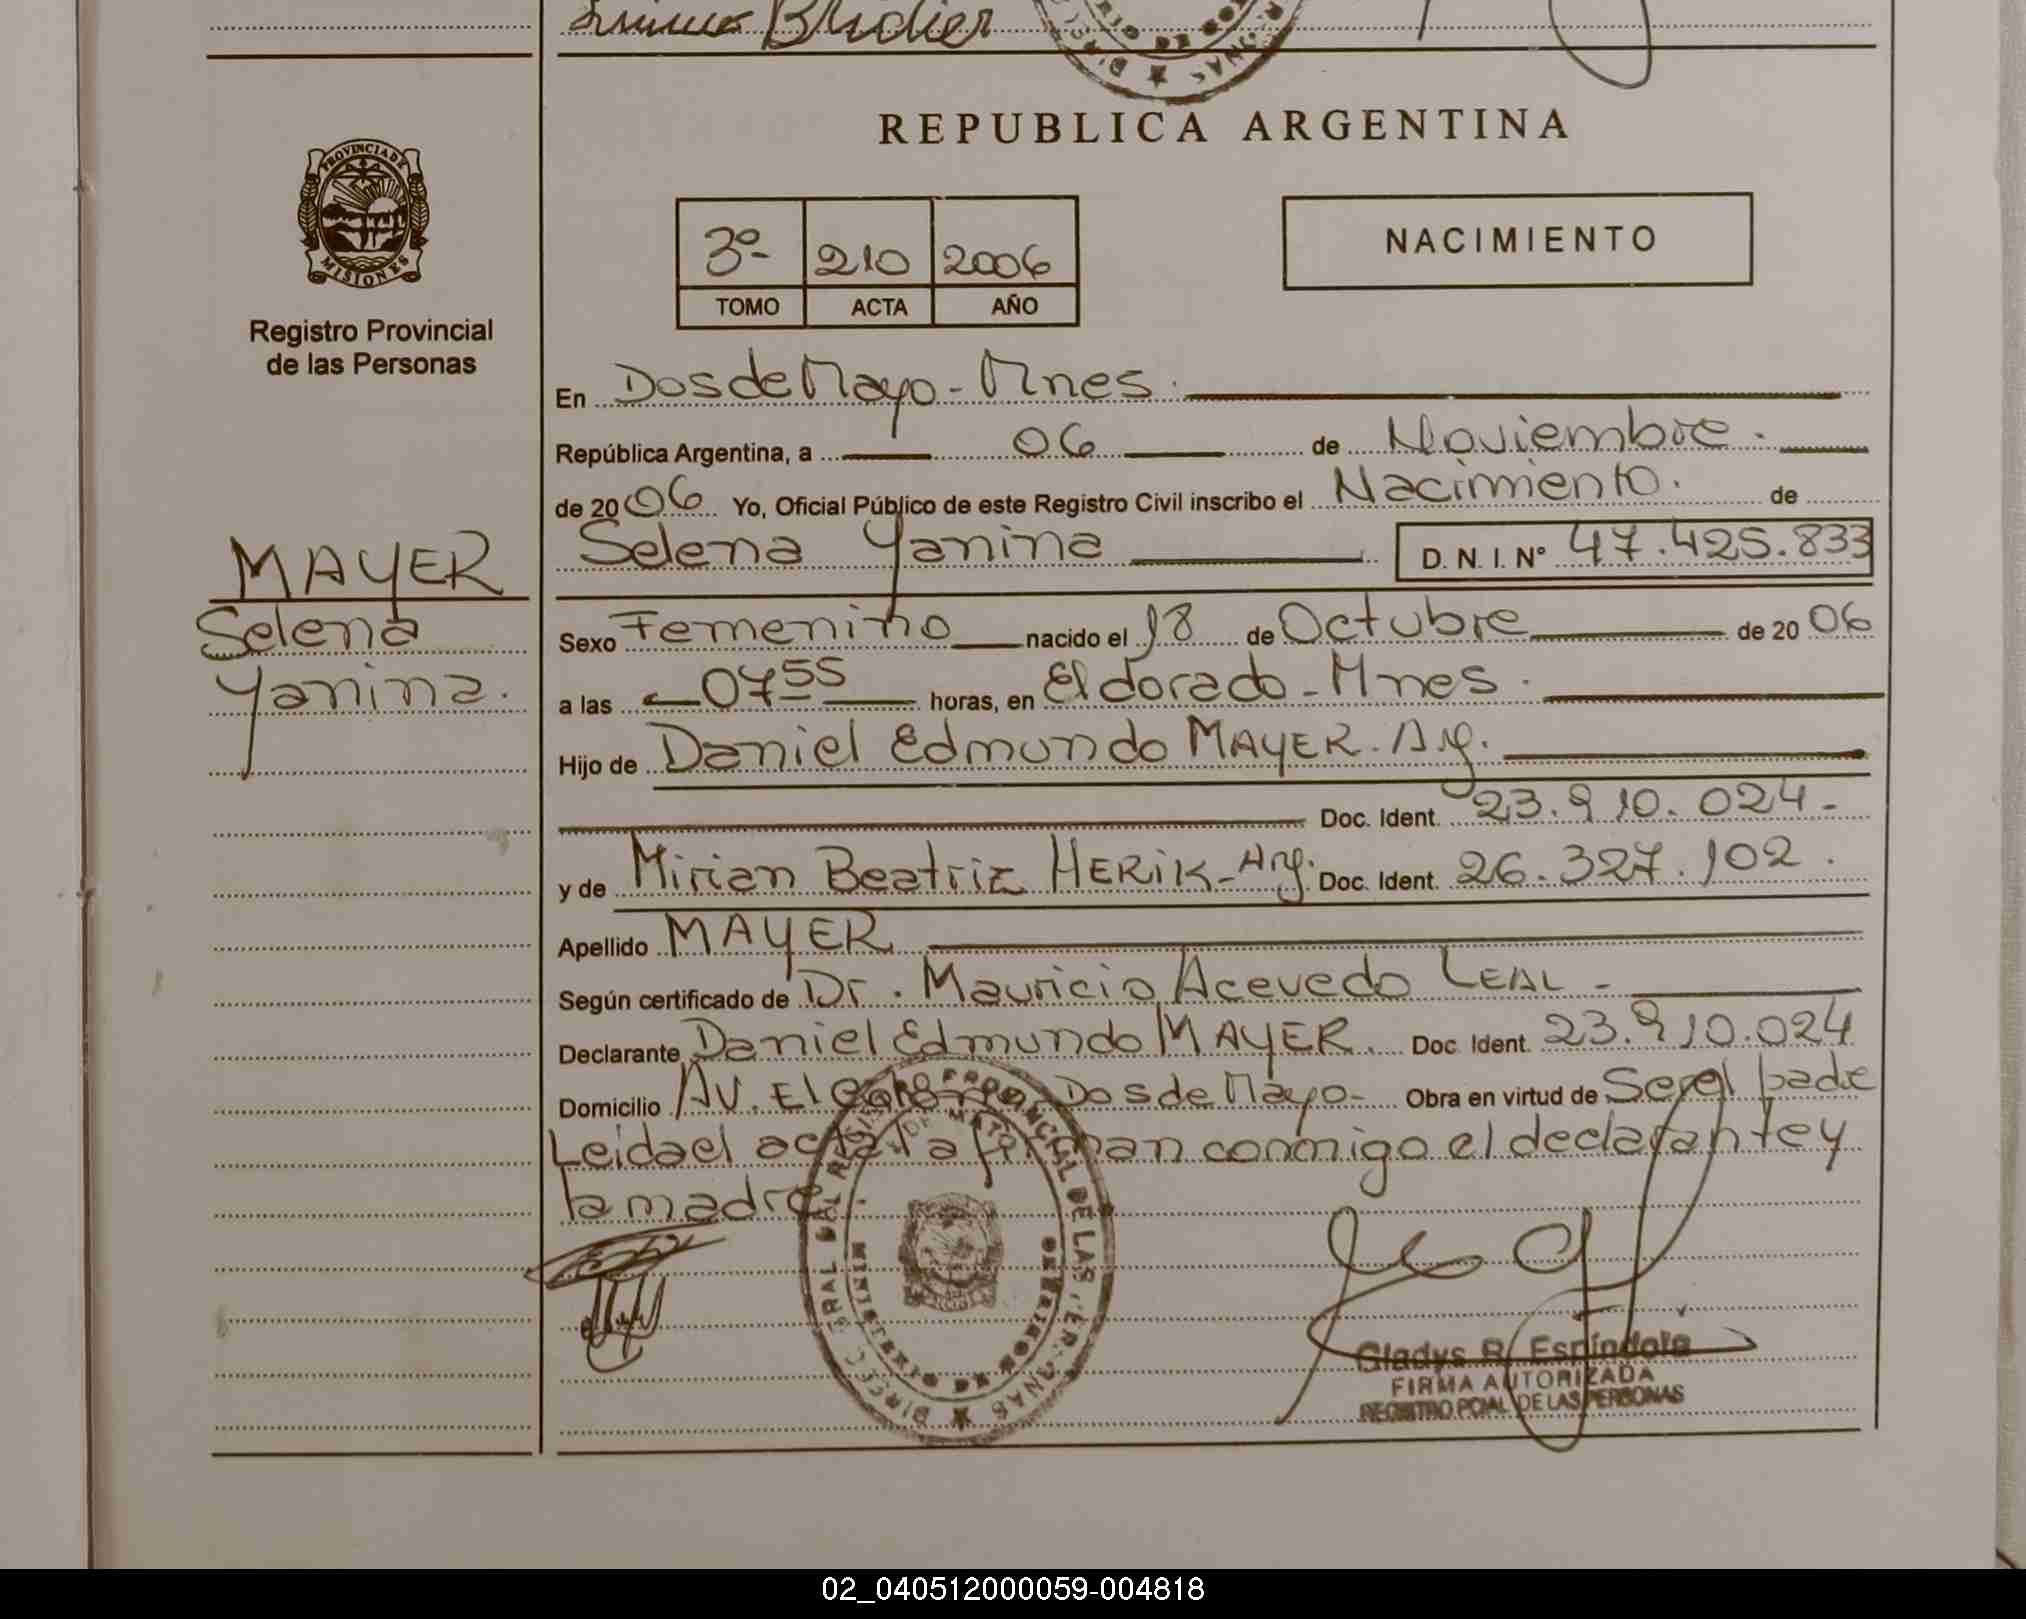 Bridier
REPUBLICA ARGENTINA
PROVINCIA DE
MISIONES
Registro Provincial
de las Personas
3º 210 2006
TOMO ACTA AÑO
NACIMIENTO
En Dos de Mayo - Mnes.
República Argentina, a 06 de Noviembre.
de 2006 Yo, Oficial Público de este Registro Civil inscribo el Nacimiento. de
Selena Yanina D. N. I. Nº 47.425.833
MAYER
Selena
Yanina.
Sexo Femenino nacido el 18 de Octubre de 2006
a las 0755 horas, en Eldorado - Mnes.
Hijo de Daniel Edmundo MAYER. Arg.
Doc. Ident. 23.910.024-
y de Mirian Beatriz HERIK - Arg. Doc. Ident. 26.327.102.
Apellido MAYER
Según certificado de Dr. Mauricio Acevedo LEAL -
Declarante Daniel Edmundo MAYER. Doc. Ident. 23.910.024
Domicilio AV. El Dos de Mayo- Obra en virtud de Ser el padre
Leida el acta la firman conmigo el declarante y
la madre.
Gladys R. Espíndola
FIRMA AUTORIZADA
REGISTRO PCIAL DE LAS PERSONAS
02_040512000059-004818